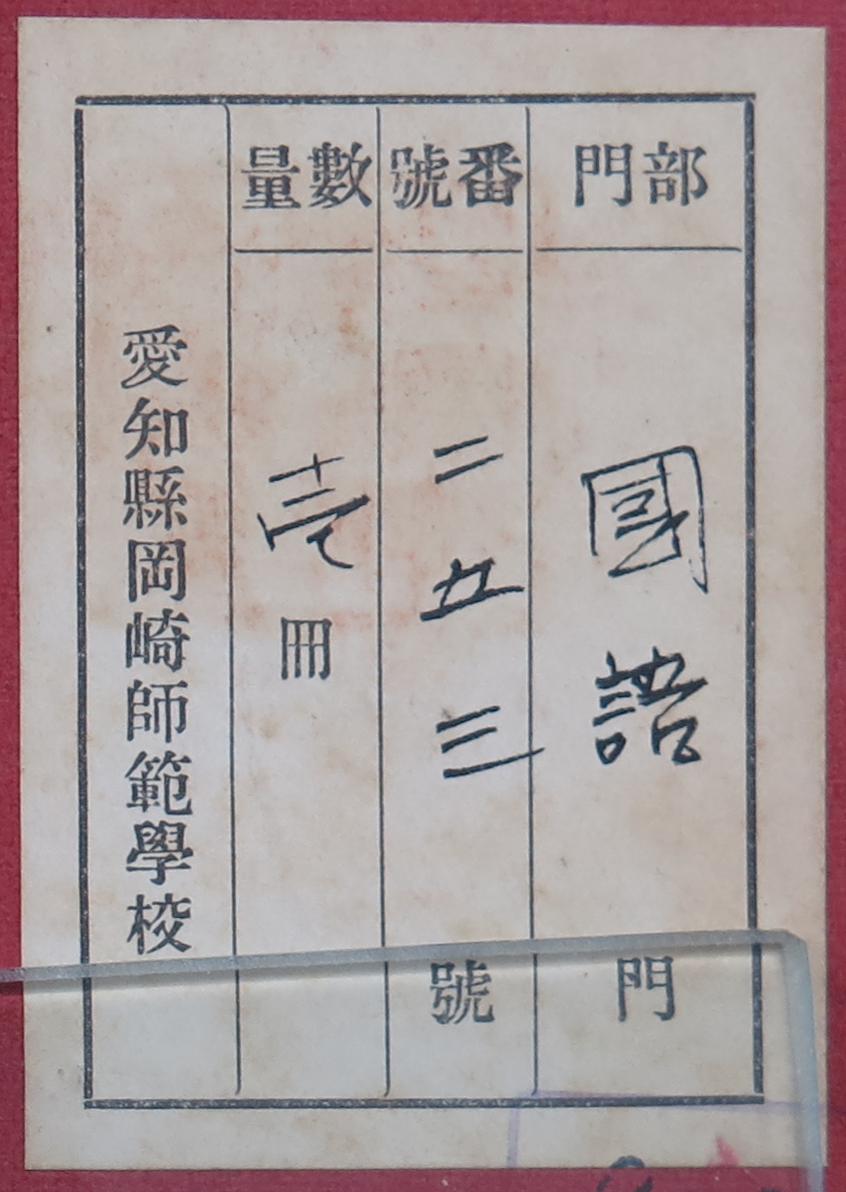 部門
國語門
番號
二五三號
數量
壱冊
愛知縣岡崎師範學校